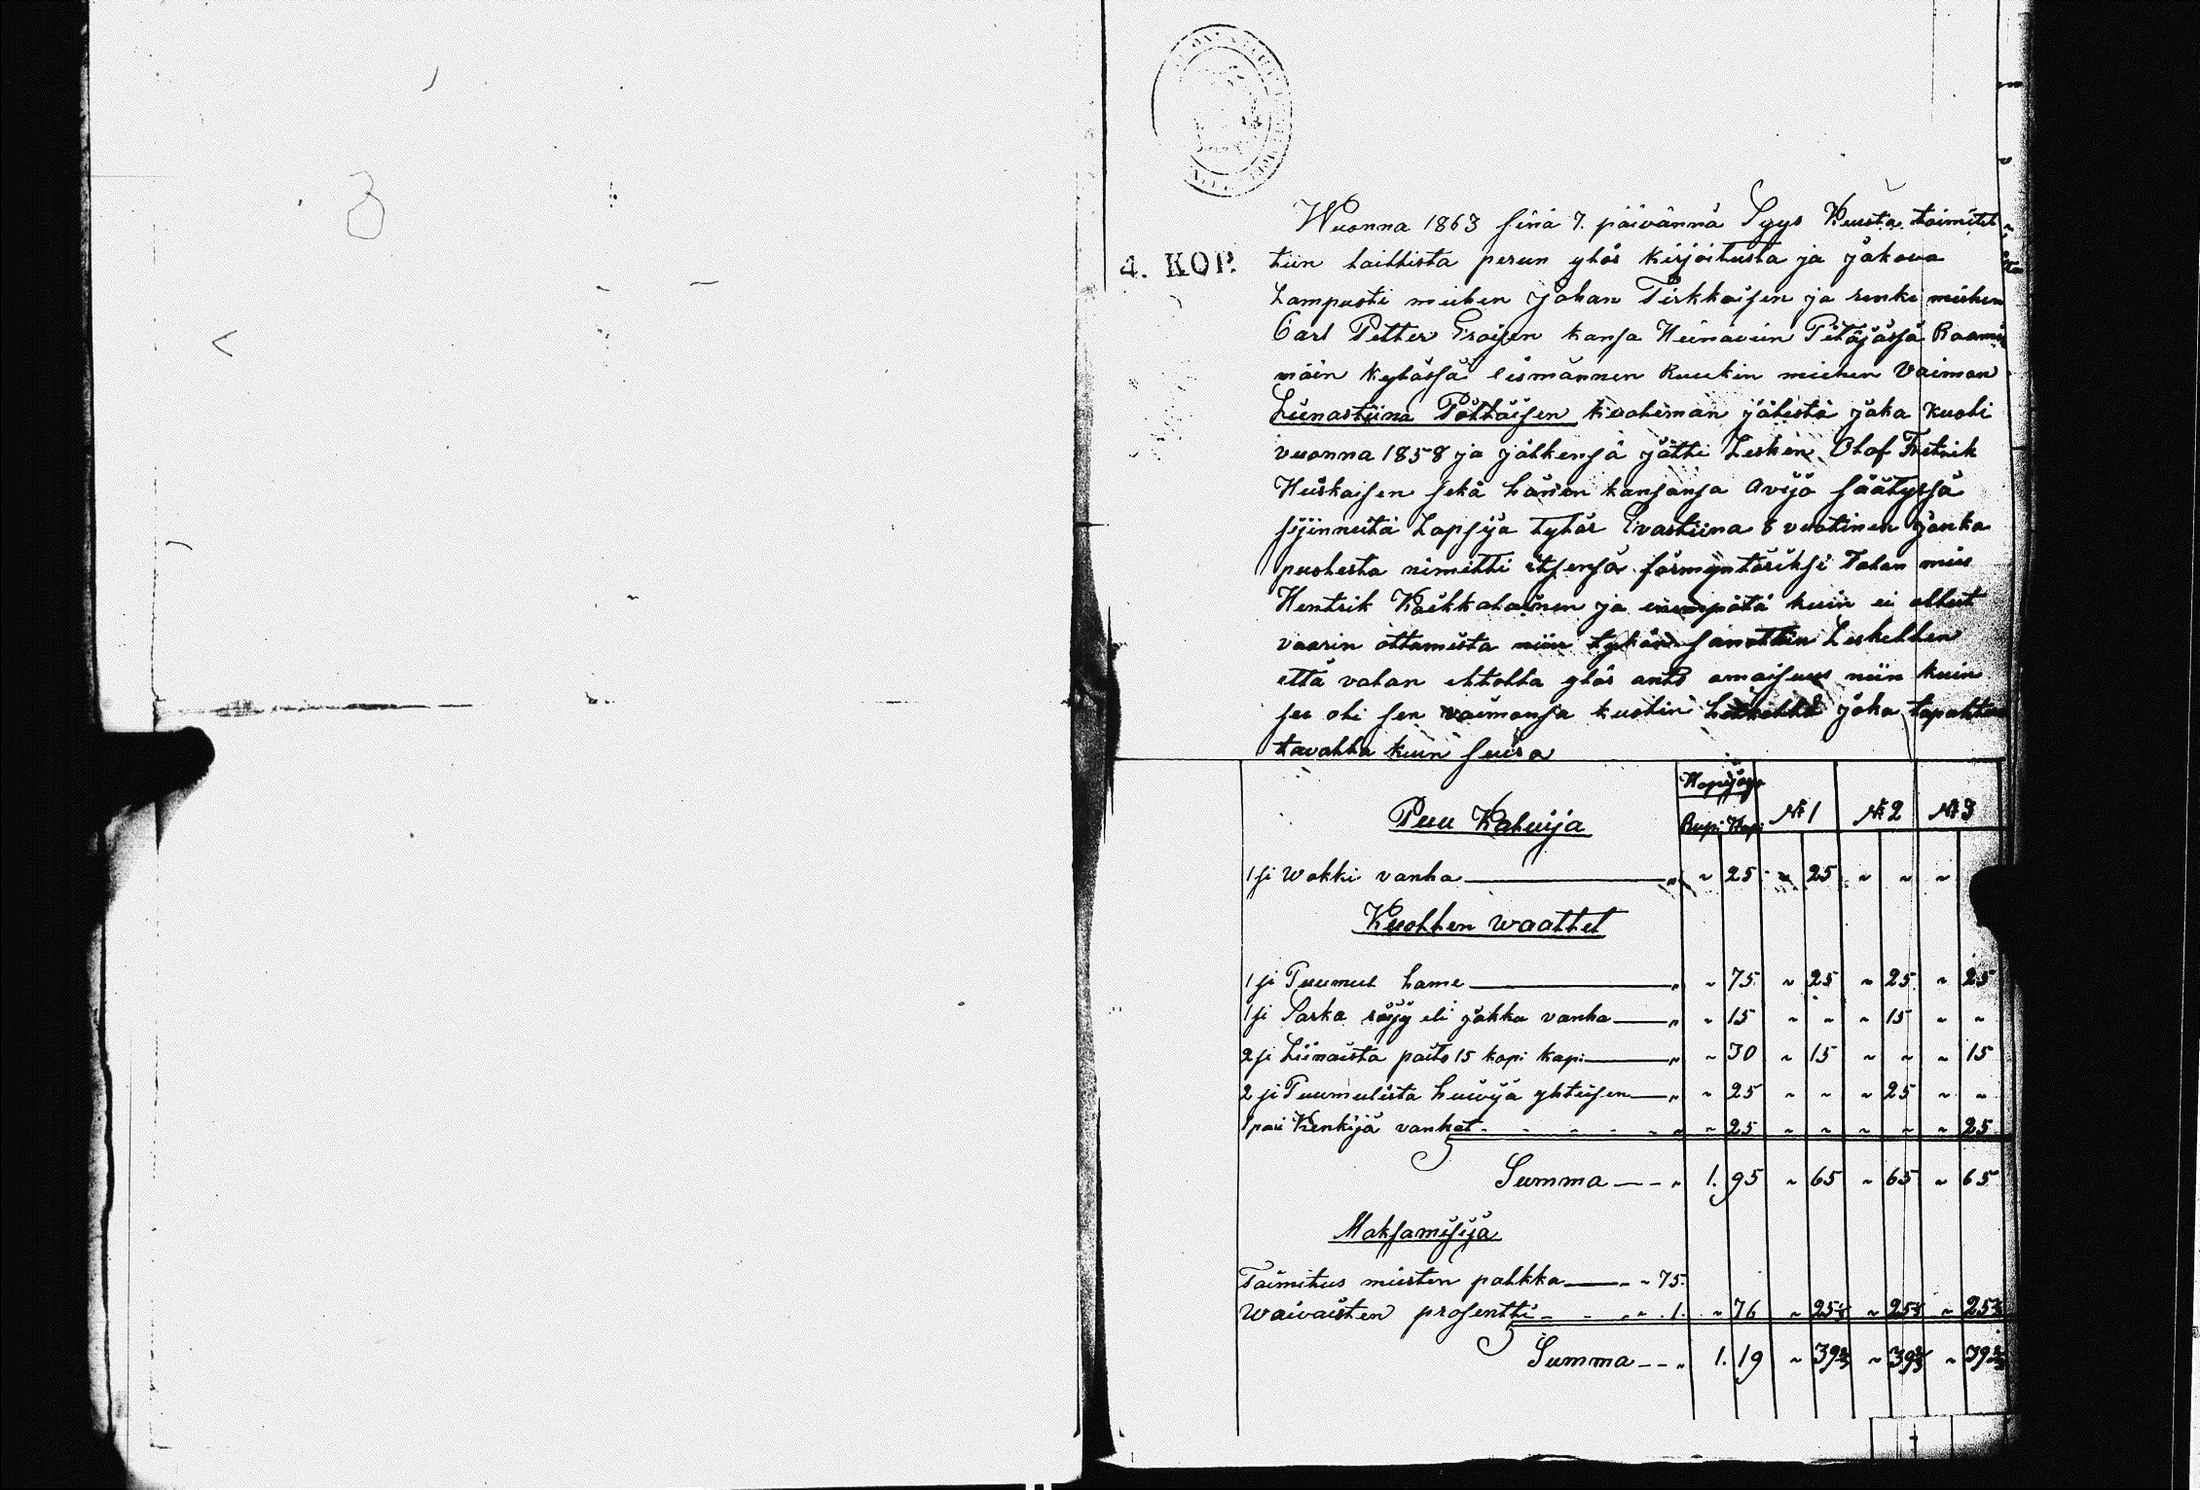 4. KOP.
Wuonna 1863 sinä 7. päivännä Syys Kuusta toimitet
tiin laillista perun ylös kirjoitusta ja jakoua
Lampuoti miehen Johan Tirkkoisen ja renki miehen
Carl Petter Eroisen kansa Heinävein Pitäjässä Raami
mäin kylässä eismännen Ruukin miehen Vaimon
Liinastiina Pöllläisen kuoleman jälestä joka kuoli
vuonna 1858 ja jälkensä jätti Lesken Olof Fretrik
Heiskaisen sekä hänen kansansa avijo säätyssä
sijinneitä Lapsija tytär Evastiina 8 vuotinen jonka
puolesta nimitti itsensä förmyntäriksi Talan mies
Hentrik Kaikkalainen ja enempätä kuin ei ollut
vaarin ottamista niin sanottiin Leskellen
että valan ehtolla ylös anto omaisuus niin kuin
se oli sen vaimonsa kuolin hetkellä joka tapahtui
tavalla kuin seura
Hopijassa
Puu Kaluija Rupi Kopi № 1 № 2 № 3
1 si Wakki vanha " " 25 " 25 " " "
Kuollen waattet
1 si Puumul hame " " 75 " 25 " 25 " 25
1 si Sarka röijy eli jakka vanha " " 15 " " " 15 " "
2 si Liinaista paito 15 kopi kapi " " 30 " 15 " " " 15
2 si Puumulista huivija yhteisen " " 25 " " " 25 " "
1 pari Kenkijä vanhat " " 25 " " " " " 25
Summa " 1. 95 " 65 " 65 " 65
Maksamisija
Toimitus miesten palkka " 75.
Waivaisten prosentti " 1. " 76 " 25⅓ " 25⅓ " 25⅓
Summa " 1. 19 " 39⅔ " 39⅔ " 39⅔